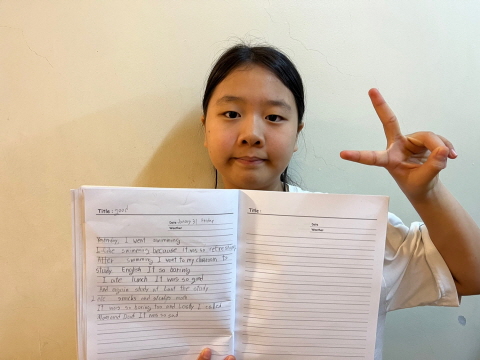 Title : good
Date
Weather
Yesterday, I went swimming
I like swimming because it was so refreshing
After swimming, I went to my classroom to
study English It so boring
I ate lunch It was so good
And again study at last the study
I ate snacks and studied math
It was so boring too and lastly I called
Mom and Dad It was so sad
Title :
Date
Weather